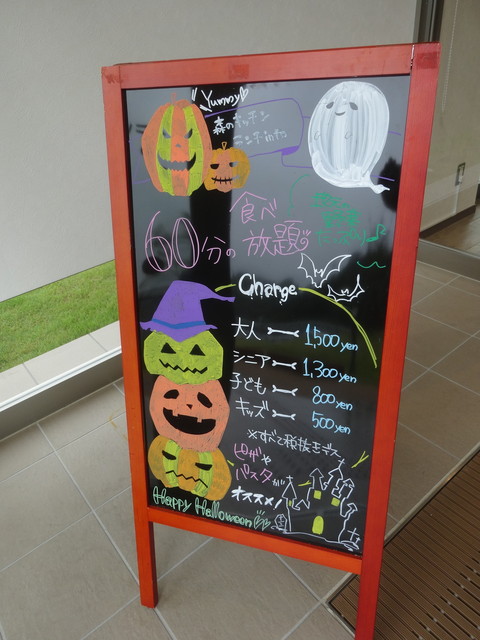 Yummy♡
森のキッチン
ランチ
地元の
野菜
たっぷり♪
食べ
60分の放題
Charge
大人 1,500yen
シニア 1,300yen
子ども 800yen
キッズ 500yen
※すべて税抜きデス
ピザや
パスタが
オススメ!
Happy Halloween